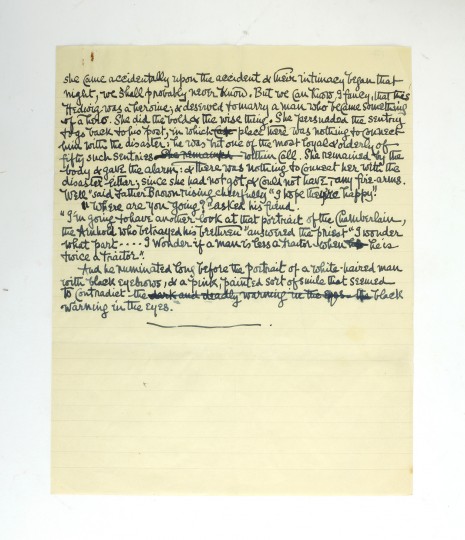 she came accidentally upon the accident & their intimacy began that
night, we shall probably never know. But we can know, I fancy, that this
Hedwig was a heroine; & deserved to marry a man who became something
of a hero. She did the bold & the wise thing. She persuaded the sentry
to go back to his post, in which place there was nothing to connect
him with the disaster; he was but one of the most loyal & orderly of
fifty such sentries She remained within call. She remained by the
body & gave the alarm; & there was nothing to connect her with the
disaster either; since she had not got, & could not have, any fire-arms.
Well" said Father Brown rising cheerfully "I hope they're happy".
"Where are you going?" asked his friend.
"I'm going to have another look at that portrait of the Chamberlain,
the Arnhold who betrayed his brethren" answered the priest "I wonder
what part .... I wonder if a man is less a traitor when he is
twice a traitor".
And he ruminated long before the portrait of a white-haired man
with black eyebrows, & a pink, painted sort of smile that seemed
to contradict the dark and deadly warning in the eyes the black
warning in the eyes.